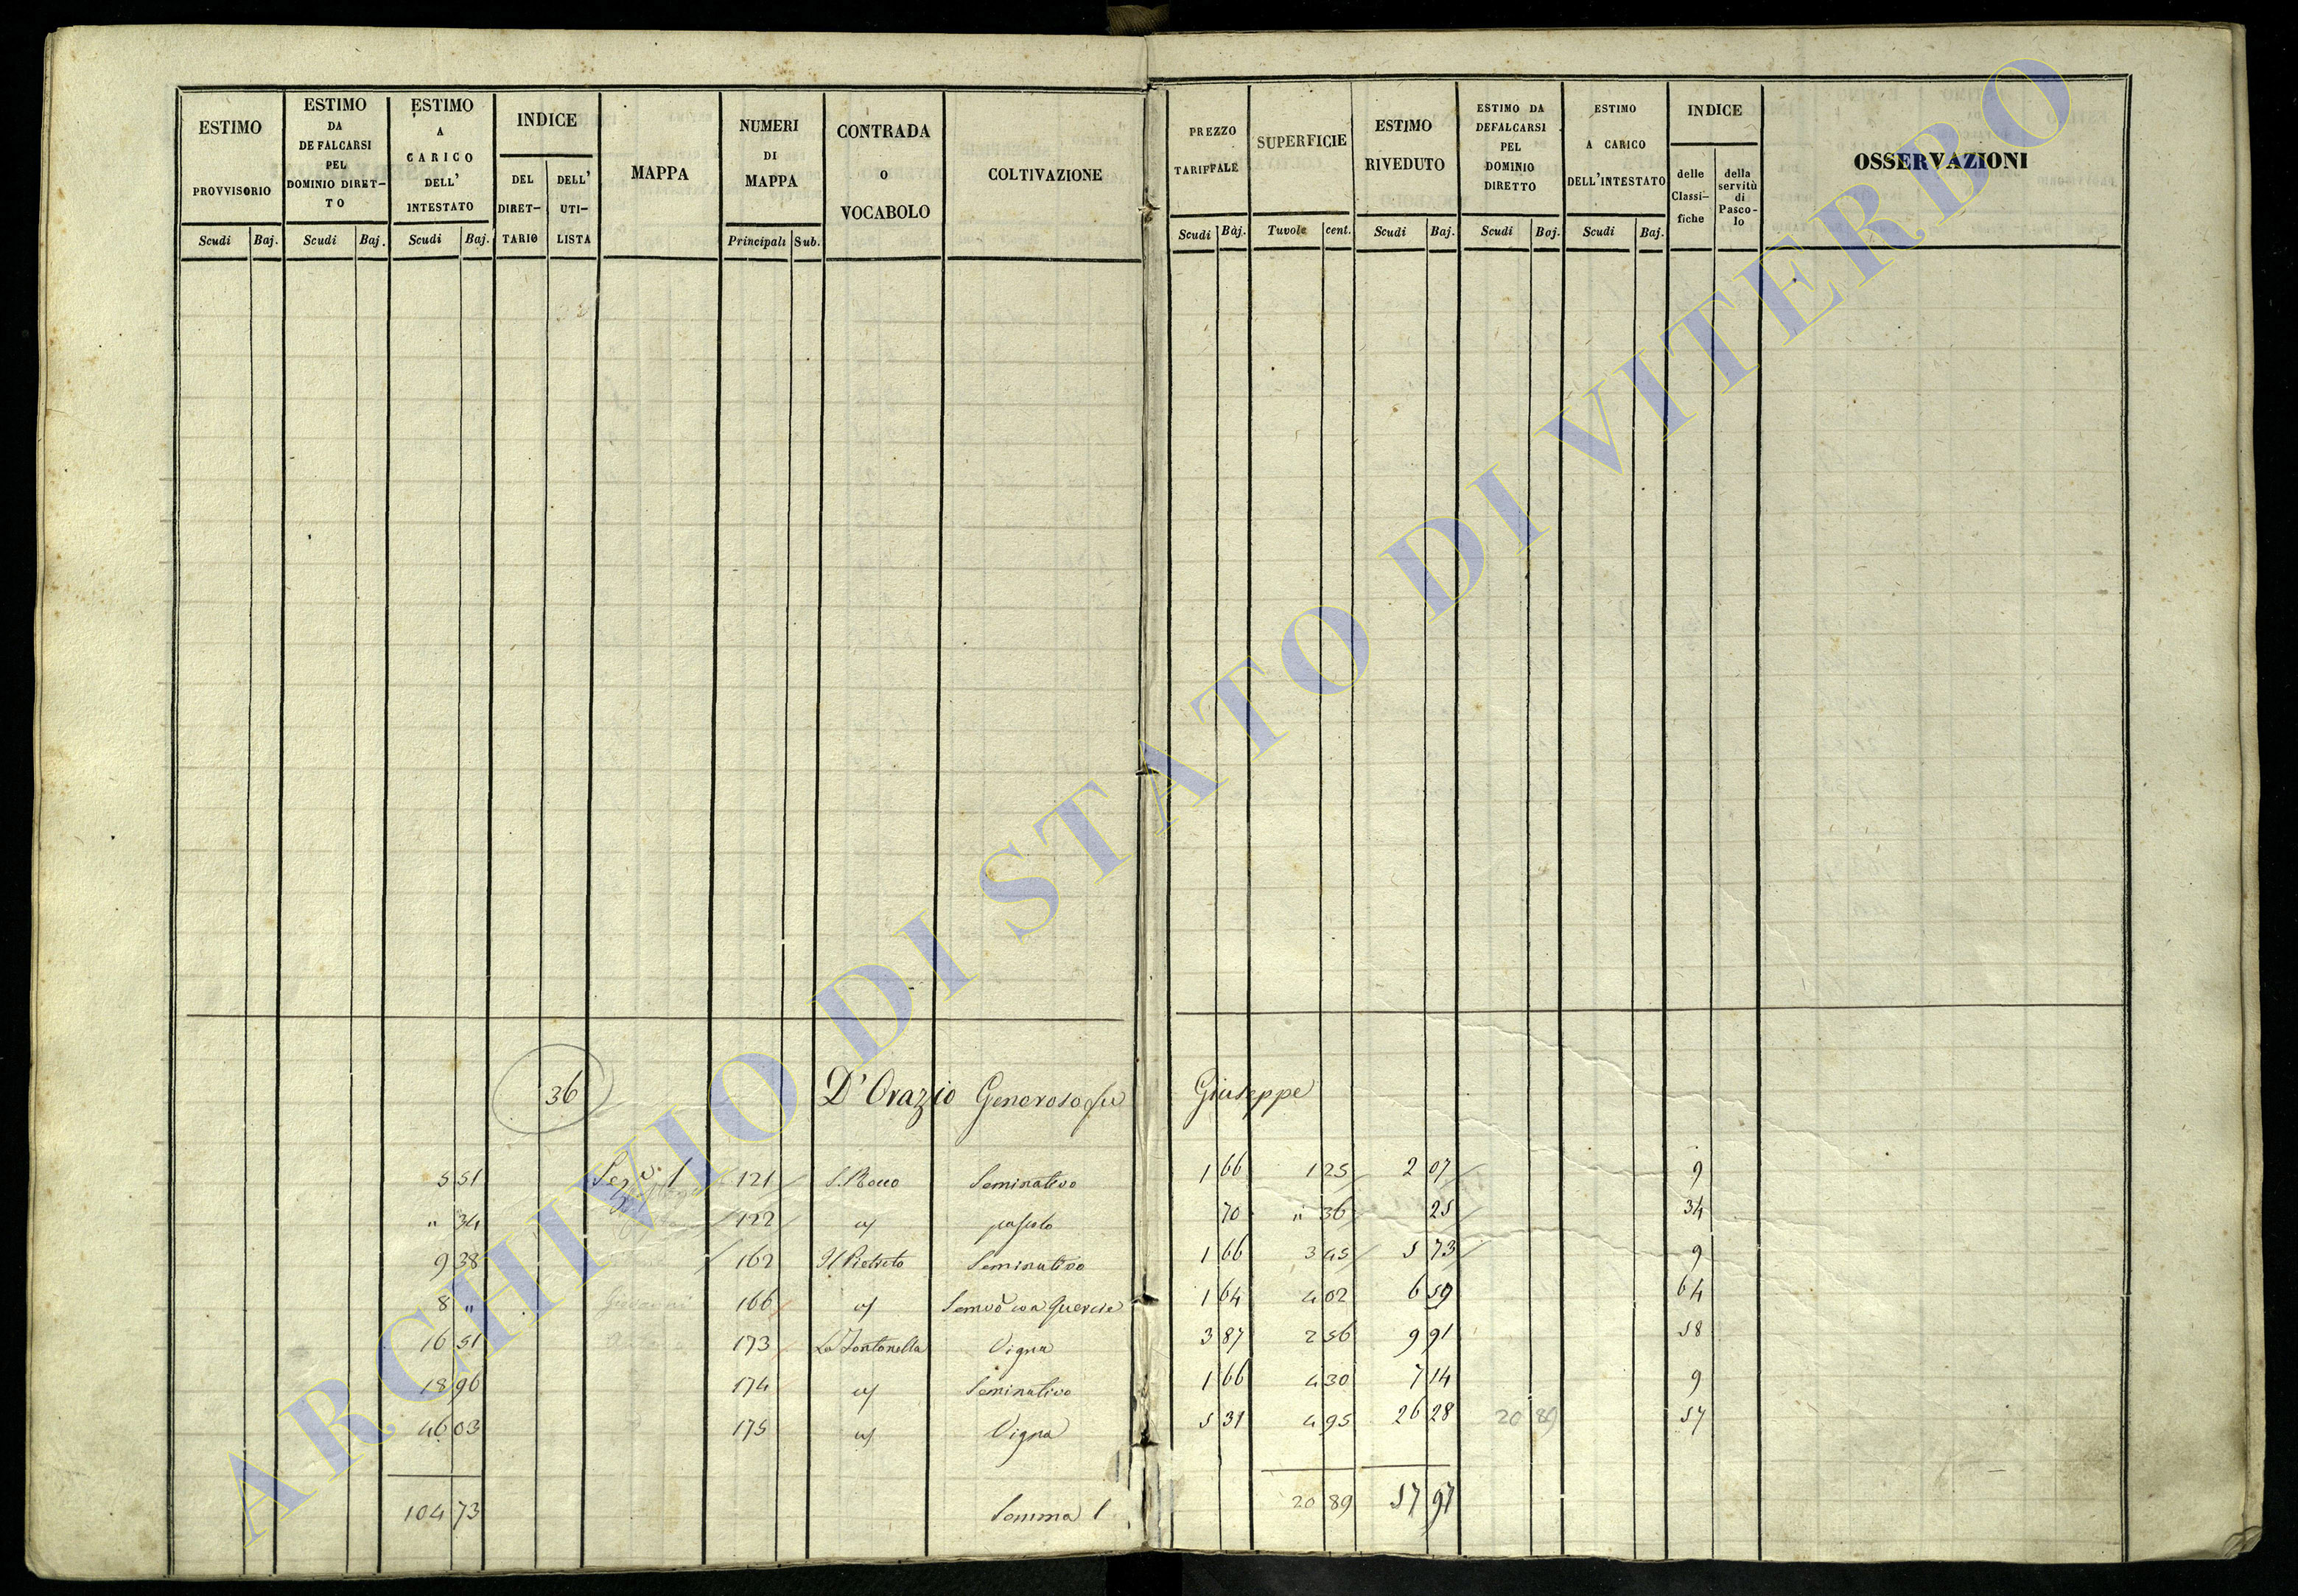 ESTIMO PROVVISORIO
Scudi Baj.
ESTIMO DA DEFALCARSI PEL DOMINIO DIRET-TO
Scudi Baj.
ESTIMO A CARICO DELL' INTESTATO
Scudi Baj.
INDICE
DEL DIRET-TARIO
DELL' UTI-LISTA
MAPPA
NUMERI DI MAPPA
Principali Sub.
CONTRADA O VOCABOLO
COLTIVAZIONE
PREZZO TARIFFALE
Scudi Baj.
SUPERFICIE
Tavole cent.
ESTIMO RIVEDUTO
Scudi Baj.
ESTIMO DA DEFALCARSI PEL DOMINIO DIRETTO
Scudi Baj.
ESTIMO A CARICO DELL'INTESTATO
Scudi Baj.
INDICE
delle Classi-fiche
della servitù di Pasco-lo
OSSERVAZIONI
36 D'Orazio Generoso fu Giuseppe
5 51 Sez.e 1 121 S. Rocco Seminativo 1 66 1 25 2 07 9
" 34 122 a/ pascolo 70 " 36 25 34
9 38 162 Il Pietreto Seminativo 1 66 3 45 5 73 9
8 " Giovanni 166 a/ Semvo con Quercie 1 64 4 02 6 59 64
16 51 173 La Fontanella Vigna 3 87 2 56 9 91 58
18 96 174 a/ Seminativo 1 66 4 30 7 14 9
46 03 175 a/ Vigna 5 31 4 95 26 28 20 89 57
104 73 Somma 20 89 57 97
ARCHIVIO DI STATO DI VITERBO